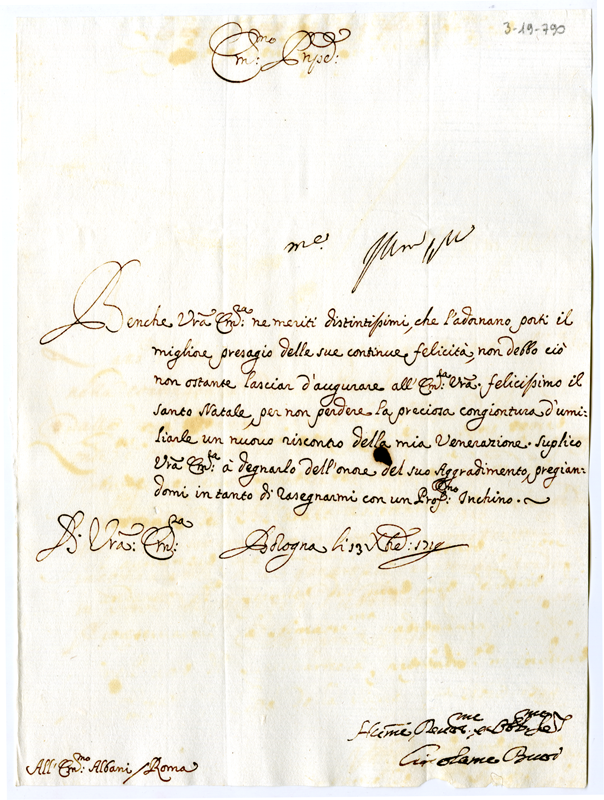 3-19-790
Em:mo Prnpe:
Benche Vrã Em:za ne meriti distintissimi, che l'adornano, porti il
migliore presagio delle sue continue felicità, non debbo ciò
non ostante lasciar d'augurare all'Em:za Vrã. felicissimo il
santo Natale, per non perdere la preciosa congiontura d'umi-
liarle un nuovo risconto della mia Venerazione. Suplico
Vrã Em:za à degnarlo dell'onore del suo Aggradimento, pregian-
domi in tanto di rasegnarmi con un Prof:mo Inchino.
D: Vrã: Em:za Bologna li 13 Xbre: 1719
All' Em:mo Albani / Roma